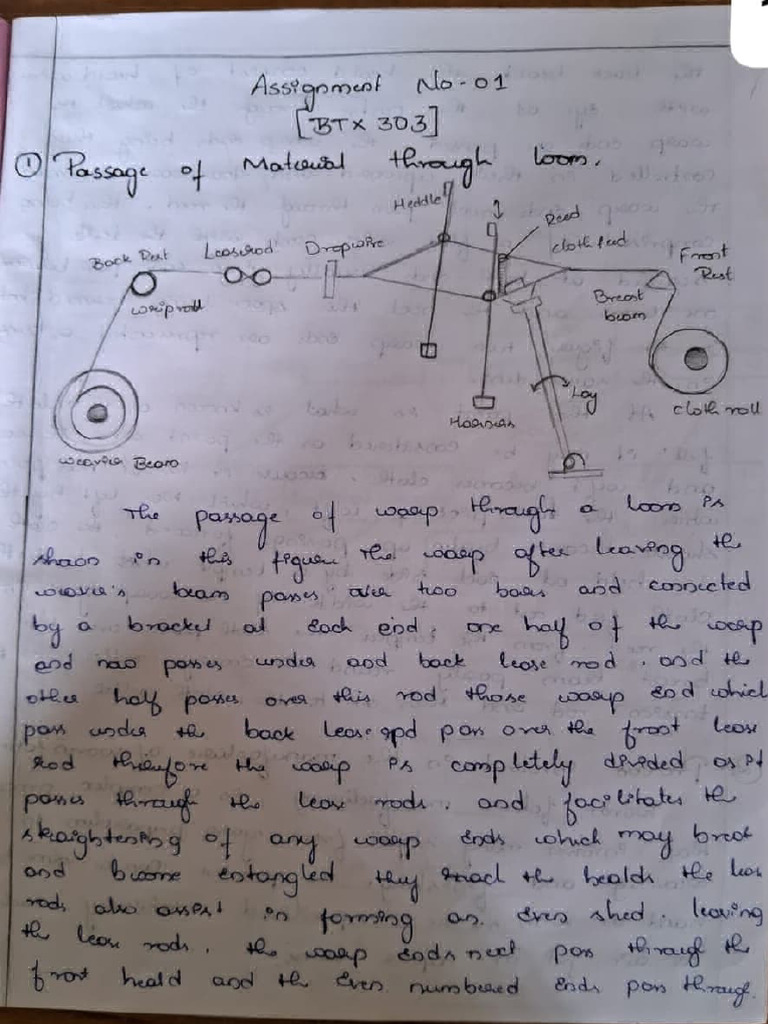 Assignment No-01
[BTX 303]
① Passage of Material through loom.
Heddle
Reed
Back Rest Leaserod Dropwire cloth feed Front Rest
whiproll Breast beam
Lay
Harness cloth roll
weaver Beam
The passage of warp through a loom is
shaon in this figure the warp after leaving the
weaver's beam passes over two bars and connected
by a bracket at each end. one half of the warp
end now passes under and back lease rod. and the
other half passes over this rod those warp end which
pass under the back lease rod pass over the front lease
rod therefore the warp is completely divided as it
passes through the lease rods. and facilitates the
straightening of any warp ends which may break
and become entangled they reach the healds the leas
rods also assist in forming an even shed. leaving
the lease rods. the warp ends next pass through the
front heald and the even numbered ends pass through